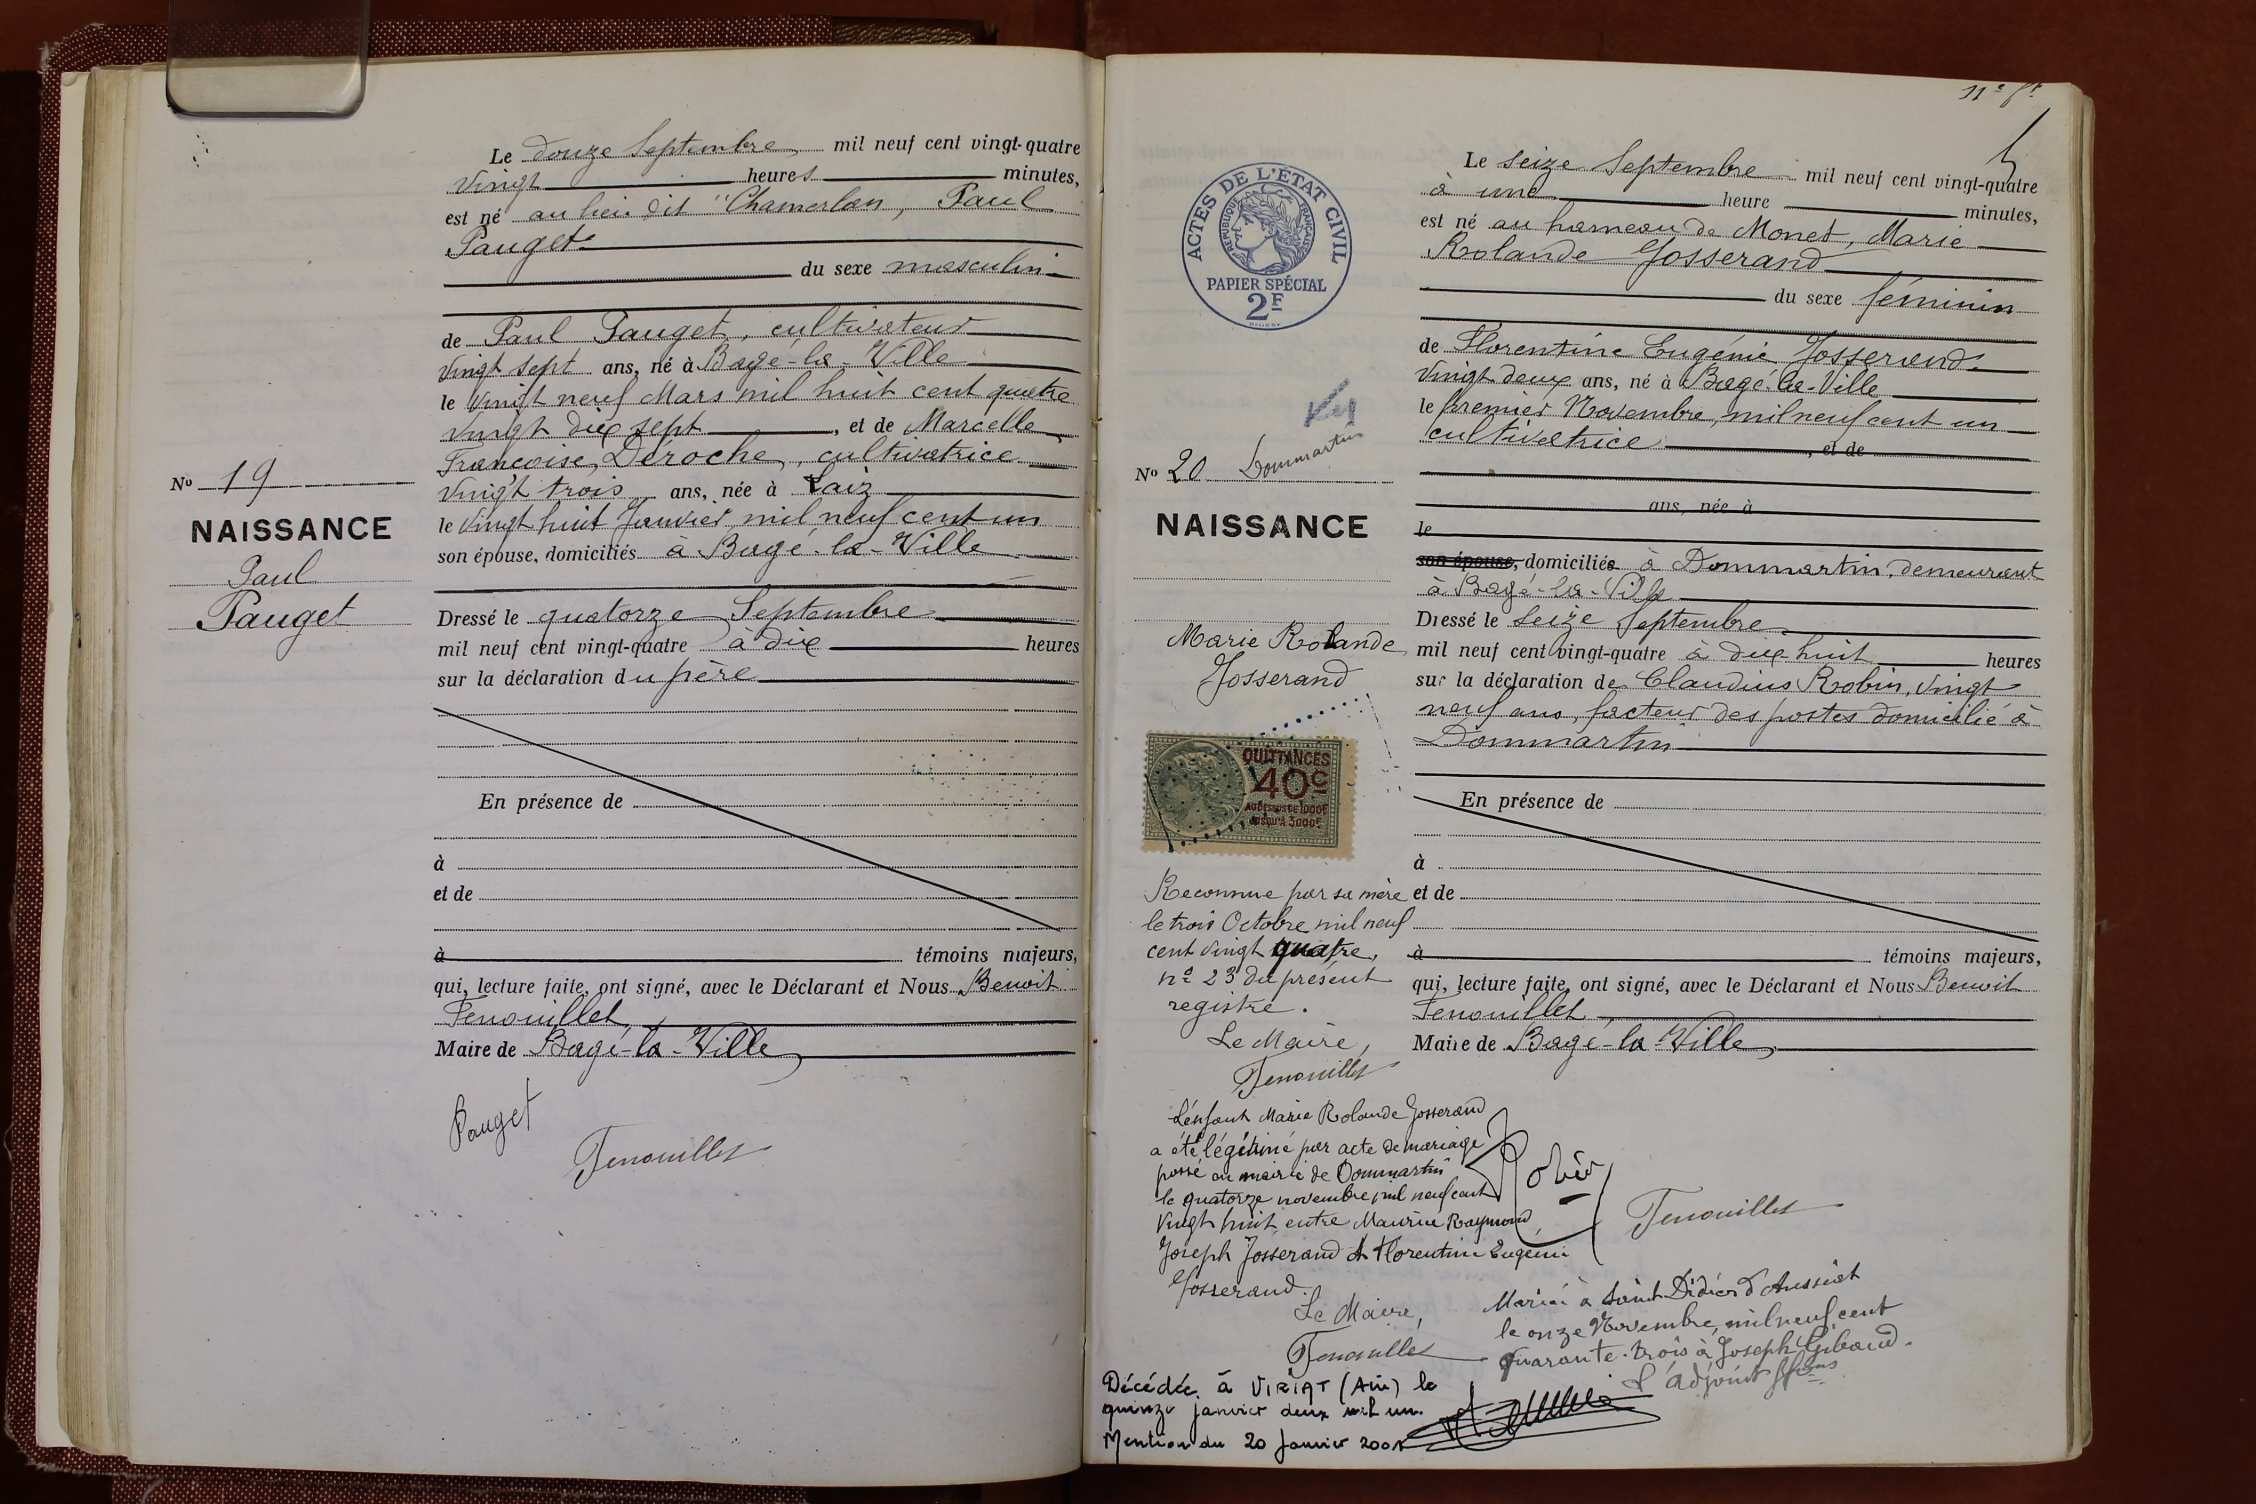 Le douze Septembre mil neuf cent vingt-quatre
vingt heures minutes,
est né au lieu dit "Chamerlan, Paul
Pauget
du sexe masculin
de Paul Pauget, cultivateur
vingt sept ans, né à Bagé-la-Ville
le vingt neuf Mars mil huit cent quatre
vingt dix sept, et de Marcelle
Françoise Deroche, cultivatrice
vingt trois ans, née à Laiz
le vingt huit Janvier mil neuf cent un
son épouse, domiciliés à Bagé-la-Ville
No 19
NAISSANCE
Paul
Pauget
Dressé le quatorze Septembre
mil neuf cent vingt-quatre à dix heures
sur la déclaration du père
En présence de
à
et de
à témoins majeurs,
qui, lecture faite, ont signé, avec le Déclarant et Nous Benoit
Fenouillet,
Maire de Bagé-la-Ville,
Pauget
Fenouillet
11e ft
ACTES DE L'ETAT CIVIL
REPUBLIQUE FRANÇAISE
PAPIER SPÉCIAL
2F
Le seize Septembre mil neuf cent vingt-quatre
à une heure minutes,
est né au hameau de Monet, Marie
Rolande Josserand
du sexe féminin
de Florentine Eugénie Josserand
vingt deux ans, né à Bagé-la-Ville
le premier Novembre, mil neuf cent un
cultivatrice, et de
ans, née à
le
son épouse, domiciliée à Dommartin, demeurant
à Bagé-la-Ville
Dressé le seize Septembre
mil neuf cent vingt-quatre à dix huit heures
sur la déclaration de Claudius Robin, vingt
neuf ans, facteur des postes domicilié à
Dommartin
En présence de
à
et de
à témoins majeurs,
qui, lecture faite, ont signé, avec le Déclarant et Nous Benoit
Fenouillet
Maire de Bagé-la-Ville,
No 20 Dommartin
NAISSANCE
Marie Rolande
Josserand
QUITTANCES
40c
AU DESSUS DE 1000F
JUSQU'À 3000F
Reconnue par sa mère
le trois Octobre mil neuf
cent vingt quatre,
no 23 du présent
registre.
Le Maire,
Fenouillet
L'enfant Marie Rolande Josserand
a été légitimé par acte de mariage
passé en mairie de Dommartin
le quatorze novembre mil neuf cent
vingt huit entre Maurice Raymond
Joseph Josserand et Florentine Eugénie
Josserand.
Le Maire,
Fenouillet
Robin
Fenouillet
Mariée à Saint Didier d'Aussiat
le onze Novembre, mil neuf cent
quarante-trois à Joseph Gibaud.
L'adjoint
Décédée à VIRIAT (Ain) le
quinze janvier deux mil un.
Mention du 20 Janvier 2001